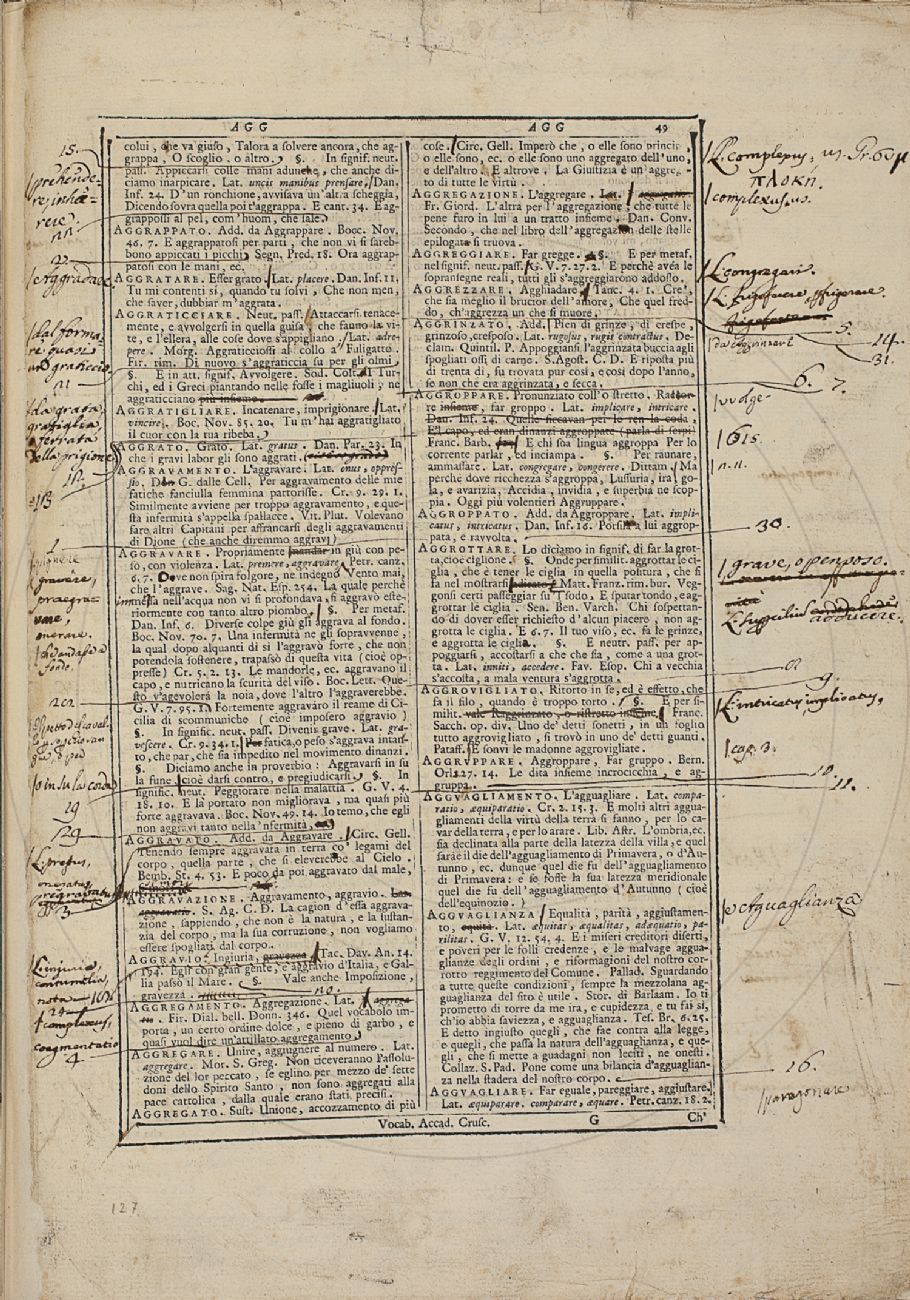 AGG
AGG 49
colui, che va giuso, Talora a solvere ancora, che ag-
grappa, O scoglio, o altro. §. In signif. neut.
pass. Appiccarsi colle mani adunche, che anche di-
ciamo inarpicare. Lat. uncis manibus prensare. Dan.
Inf. 24. D'un ronchione, avvisava un'altra scheggia,
Dicendo sovra quella poi t'aggrappa. E cant. 34. E ag-
grappossi al pel, com'huom, che sale.
AGGRAPPATO. Add. da Aggrappare. Bocc. Nov.
46. 7. E aggrappatosi per parti, che non vi si sareb-
bono appiccati i picchi. Segn. Pred. 18. Ora aggrap-
patosi con le mani, ec.
AGGRATARE. Esser grato. Lat. placere. Dan. Inf. 11.
Tu mi contenti sì, quando tu solvi, Che non men,
che saver, dubbiar m'aggrata.
AGGRATICCIARE. Neut. pass. Attaccarsi tenace-
mente, e avvolgersi in quella guisa, che fanno la vi-
te, e l'ellera, alle cose dove s'appigliano. Lat. adre-
pere. Morg. Aggraticciossi al collo a Fuligatto.
Fir. rim. Di nuovo s'aggraticcia su per gli olmi,
§. E in att. signif. Avvolgere. Sod. Colt. I Tur-
chi, ed i Greci piantando nelle fosse i magliuoli, ne
aggraticciano più insieme.
AGGRATIGLIARE. Incatenare, imprigionare. Lat.
vincire. Boc. Nov. 85. 20. Tu m'hai aggratigliato
il cuor con la tua ribeba.
AGGRATO. Grato. Lat. gratus. Dan. Par. 23. In
che i gravi labor gli sono aggrati.
AGGRAVAMENTO. L'aggravare. Lat. onus, oppres-
sio. Don G. dalle Cell. Per aggravamento delle mie
fatiche fanciulla femmina partorisse. Cr. 9. 29. 1.
Similmente avviene per troppo aggravamento, e que-
sta infermità s'appella spallacce. Vit. Plut. Volevano
fare altri Capitani per affrancarsi degli aggravamenti
di Dione (che anche diremmo aggravj)
AGGRAVARE. Propriamente mandar in giù con pe-
so, con violenza. Lat. premere, aggravare. Petr. canz.
6. 7. Dove non spira folgore, ne indegno Vento mai,
che l'aggrave. Sag. Nat. Esp. 254. La quale perchè
immessa nell'acqua non vi si profondava, si aggravò este-
riormente con tanto altro piombo. §. Per metaf.
Dan. Inf. 6. Diverse colpe giù gli aggrava al fondo.
Boc. Nov. 70. 7. Una infermità ne gli sopravvenne,
la qual dopo alquanti dì sì l'aggravò forte, che non
potendola sostenere, trapassò di questa vita (cioè op-
presse) Cr. 5. 2. 13. Le mandorle, ec. aggravano il
capo, e nutricano la scurità del viso. Boc. Lett. Que-
sto t'agevolerà la noia, dove l'altro l'aggraverebbe.
G. V. 7. 95. 1. Fortemente aggravaro il reame di Ci-
cilia di scommuniche (cioè imposero aggravio)
§. In signific. neut. pass. Divenir grave. Lat. gra-
vescere. Cr. 9. 34. 1. Per fatica, o peso s'aggrava intan-
to, che par, che sia impedito nel movimento dinanzi.
§. Diciamo anche in proverbio: Aggravarsi in su
la fune, cioè darsi contro, e pregiudicarsi. §. In
signific. neut. Peggiorare nella malattia. G. V. 4.
18. 10. E la portato non migliorava, ma quasi più
forte aggravava. Boc. Nov. 49. 14. Io temo, che egli
non aggravi tanto nella 'nfermità,
AGGRAVATO. Add. da Aggravare. Circ. Gell.
Tenendo sempre aggravata in terra co' legami del
corpo, quella parte, che si eleverebbe al Cielo.
Bemb. St. 4. 53. E poco da poi aggravato dal male,
AGGRAVAZIONE. Aggravamento, aggravio. Lat.
aggravatio. S. Ag. C. D. La cagion d'essa aggrava-
zione, sappiendo, che non è la natura, e la sustan-
zia del corpo, ma la sua corruzione, non vogliamo
essere spogliati dal corpo.
AGGRAVIO. Ingiuria, gravezza. Tac. Dav. An. 14.
194. Egli con gran gente, e aggravio d'Italia, e Gal-
lia passò il Mare. §. Vale anche Imposizione,
gravezza.
AGGREGAMENTO. Aggregazione. Lat.
Fir. Dial. bell. Donn. 346. Quel vocabolo im-
porta, un certo ordine dolce, e pieno di garbo, e
quasi vuol dire un'attillato aggregamento.
AGGREGARE. Unire, aggiugnere al numero. Lat.
aggregare. Mor. S. Greg. Non riceveranno l'assolu-
zione del lor peccato, se eglino per mezzo de' sette
doni dello Spirito Santo, non sono aggregati alla
pace cattolica, dalla quale erano stati precisi.
AGGREGATO. Sust. Unione, accozzamento di più
cose. Circ. Gell. Imperò che, o elle sono principj
o elle sono, ec. o elle sono uno aggregato dell'uno,
e dell'altro. E altrove. La Giustizia è un aggrega-
to di tutte le virtù.
AGGREGAZIONE. L'aggregare. Lat.
Fr. Giord. L'altra per l'aggregazione, che tutte le
pene furo in lui a un tratto insieme. Dan. Conv.
Secondo, che nel libro dell'aggregazion delle stelle
epilogata si truova.
AGGREGGIARE. Far gregge. §. E per metaf.
nel signif. neut. pass. G. V. 7. 27. 2. E perchè avea le
sopransegne reali, tutti gli s'aggreggiarono addosso.
AGGREZZARE. Agghiadare. Tanc. 4. 1. Cre',
che sia meglio il brucior dell'amore, Che quel fred-
do, ch'aggrezza un che si muore.
AGGRINZATO. Add. Pien di grinze, di crespe,
grinzoso, cresposo. Lat. rugosus, rugis contractus. De-
clam. Quintil. P. Appoggiansi l'aggrinzata buccia agli
spogliati ossi di carne. S. Agost. C. D. E riposta più
di trenta dì, fu trovata pur così, e così dopo l'anno,
se non che era aggrinzata, e secca.
AGGROPPARE. Pronunziato coll'o stretto.
re insieme, far groppo. Lat. implicare, intricare.
Dan. Inf. 24. Quelle ficcavan per le ren la coda,
E'l capo, ed eran dinanzi aggroppate (parla di serpi)
Franc. Barb. E chi sua lingua aggroppa Per lo
corrente parlar, ed inciampa. §. Per raunare,
ammassare. Lat. congregare, congerere. Dittam. Ma
perchè dove ricchezza s'aggroppa, Lussuria, ira, go-
la, e avarizia, Accidia, invidia, e superbia ne scop-
pia. Oggi più volentieri Aggruppare.
AGGROPPATO. Add. da Aggroppare. Lat. impli-
catus, intricatus. Dan. Inf. 16. Porsila a lui aggrop-
pata, e ravvolta.
AGGROTTARE. Lo diciamo in signif. di far la grot-
ta, cioè ciglione. §. Onde per similit. aggrottar le ci-
glia, che è tener le ciglia in quella positura, che si
fa nel mostrarsi Matt. Franz. rim. bur. Veg-
gonsi certi passeggiar su 'l sodo, E sputar tondo, e ag-
grottar le ciglia. Sen. Ben. Varch. Chi sospettan-
do di dover esser richiesto d'alcun piacere, non ag-
grotta le ciglia. E 6. 7. Il tuo viso, ec. fa le grinze,
e aggrotta le ciglia. §. E neutr. pass. per ap-
poggiarsi, accostarsi a che che sia, come a una grot-
ta. Lat. inniti, accedere. Fav. Esop. Chi a vecchia
s'accosta, a mala ventura s'aggrotta.
AGGROVIGLIATO. Ritorto in se, ed è effetto, che
fa il filo, quando è troppo torto. §. E per si-
milit. vale Raggrinzato, o ristretto insieme. Franc.
Sacch. op. div. Uno de' detti sonetti, in un foglio
tutto aggrovigliato, si trovò in uno de' detti guanti.
Pataff. E sonvi le madonne aggrovigliate.
AGGRVPPARE. Aggroppare, Far gruppo. Bern.
Orl. 27. 14. Le dita insieme incrocicchia, e ag-
gruppa.
AGGVAGLIAMENTO. L'agguagliare. Lat. compa-
ratio, æquiparatio. Cr. 2. 15. 3. E molti altri aggua-
gliamenti della virtù della terra si fanno, per lo ca-
var della terra, e per lo arare. Lib. Astr. L'ombria, ec.
sia declinata alla parte della latezza della villa, e qual
sarà e il die dell'agguagliamento di Primavera, o d'Au-
tunno, ec. dunque quel die fu dell'agguagliamento
di Primavera: e se fosse la sua latezza meridionale
quel die fu dell'agguagliamento d'Autunno (cioè
dell'equinozio.)
AGGVAGLIANZA. Equalità, parità, aggiustamen-
to, equità. Lat. æquitas, æqualitas, adæquatio, pa-
rilitas. G. V. 12. 54. 4. E i miseri creditori diserti,
e poveri per le folli credenze, e le malvage aggua-
glianze degli ordini, e riformagioni del nostro cor-
rotto reggimento del Comune. Pallad. Sguardando
a tutte queste condizioni, sempre la mezzolana ag-
guaglianza del sito è utile. Stor. di Barlaam. Io ti
prometto di torre da me ira, e cupidezza, e tu fai sì,
ch'io abbia saviezza, e agguaglianza. Tes. Br. 6. 25.
E detto ingiusto quegli, che fae contra alla legge,
e quegli, che passa la natura dell'agguaglianza, e que-
gli, che si mette a guadagni non leciti, ne onesti.
Collaz. S. Pad. Pone come una bilancia d'agguaglian-
za nella stadera del nostro corpo.
AGGVAGLIARE. Far eguale, pareggiare, aggiustare,
Lat. æquiparare, comparare, æquare. Petr. canz. 18. 2.
Vocab. Accad. Crusc. G Ch'
15.
prehende-
re, inhæ-
rere
dal forma-
re quasi
un graticcio
da grata,
graticola,
o ferrata
della prigione
gravare,
prægra-
vare,
onerare.
o in su la corda
29
L. pressus,
oneratus,
L. injuria,
contumelia,
complexus,
coagmentatio
4
L. complexus, us. Gr.
πλοκή.
complexus, us.
L. congregari.
L. frigescere
5.
14.
31.
6. 7.
volge-
n. 11.
30.
grave, o pensoso.
L. supercilium adducere.
8
9.
L. intricatus, implicatus,
cap. 3.
10.
11.
o Agguaglianza
16.
paragonare
127